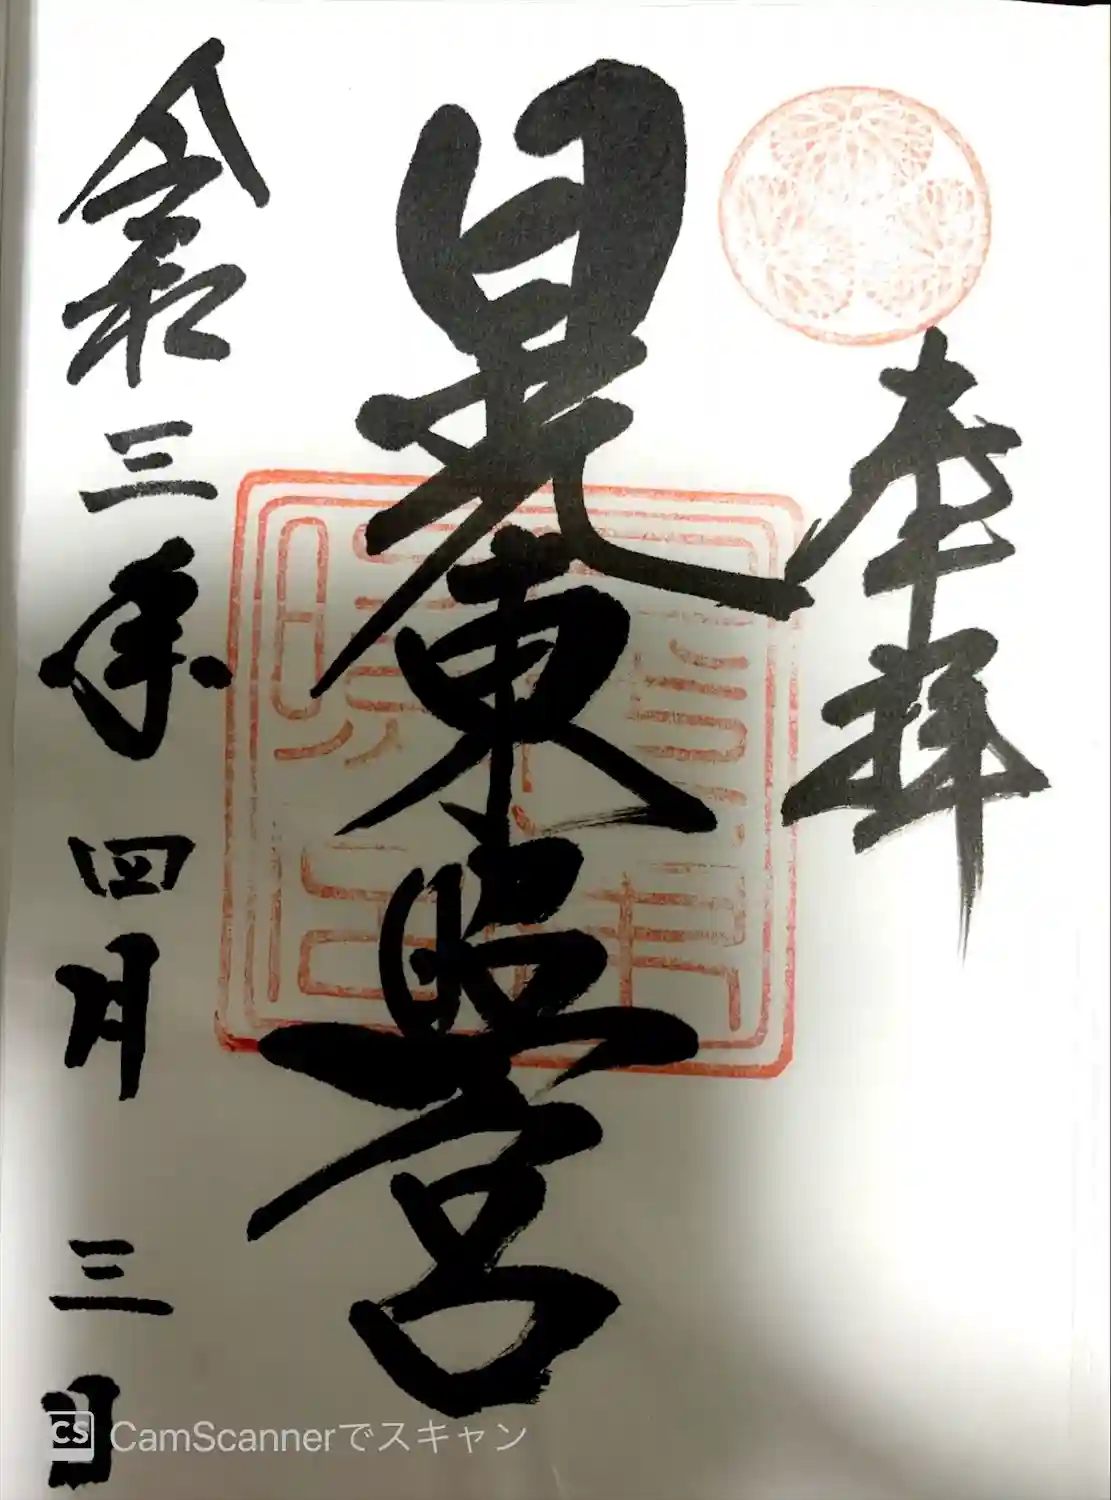 奉拝
日光東照宮
令和三年四月三日
CamScannerでスキャン